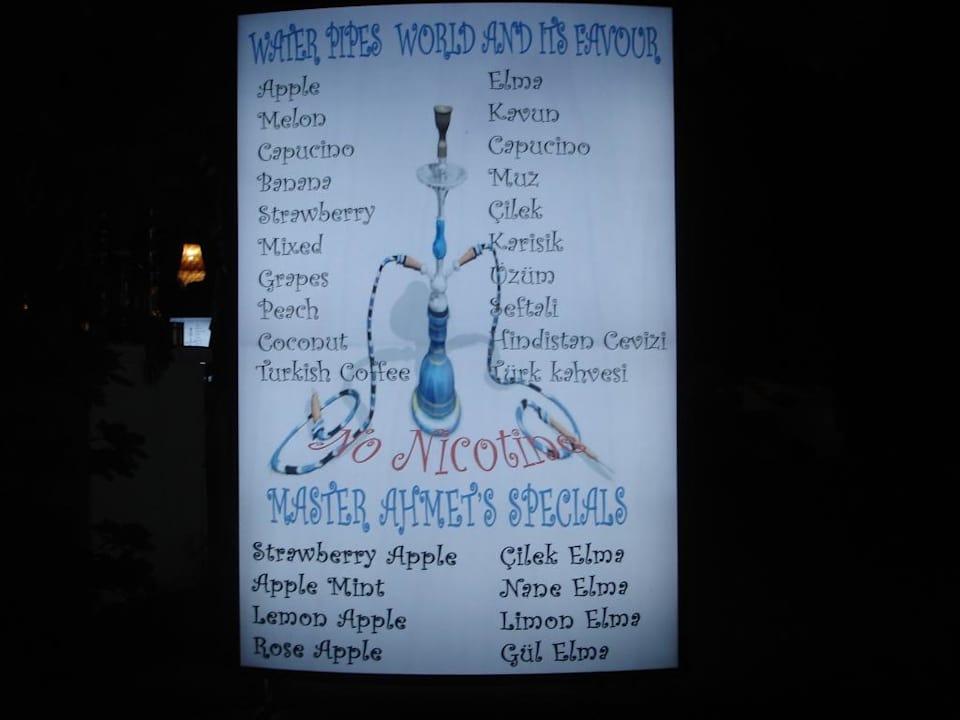 WATER PIPES WORLD AND ITS FAVOUR
Apple Elma
Melon Kavun
Capucino Capucino
Banana Muz
Strawberry Çilek
Mixed Karisik
Grapes Üzüm
Peach Seftali
Coconut Hindistan Cevizi
Turkish Coffee Türk kahvesi
No Nicotine
MASTER AHMET'S SPECIALS
Strawberry Apple Çilek Elma
Apple Mint Nane Elma
Lemon Apple Limon Elma
Rose Apple Gül Elma